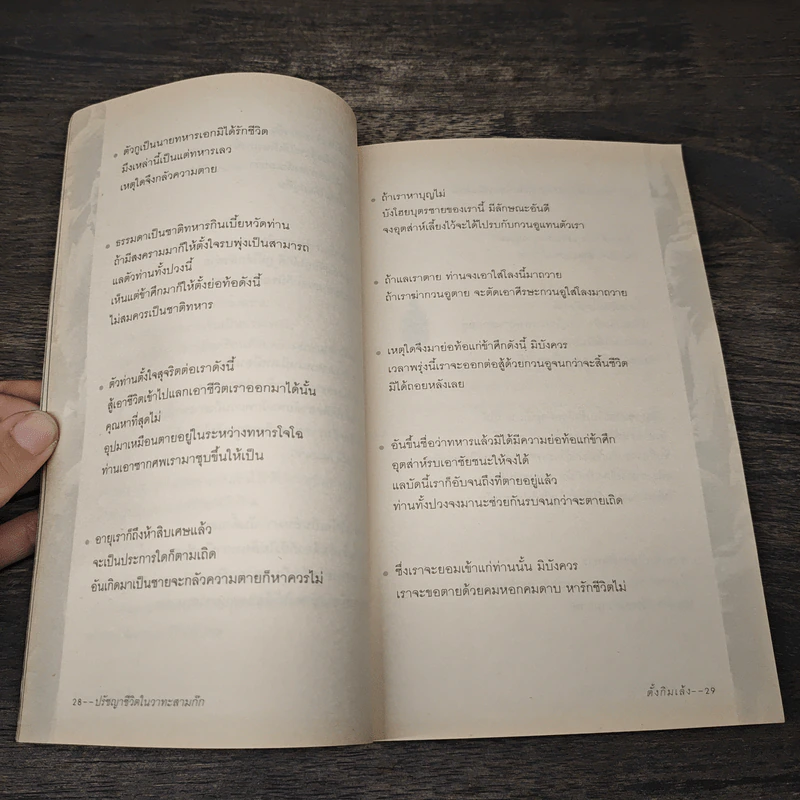 • ตัวกูเป็นนายทหารเอกมิได้รักชีวิต
มึงเหล่านี้เป็นแต่ทหารเลว
เหตุใดจึงกลัวความตาย
• ธรรมดาเป็นชาติทหารกินเบี้ยหวัดท่าน
ถ้ามีสงครามมาก็ให้ตั้งใจรบพุ่งเป็นสามารถ
แลตัวท่านทั้งปวงนี้
เห็นแต่ข้าศึกมาก็ให้ตั้งย่อท้อดังนี้
ไม่สมควรเป็นชาติทหาร
• ตัวท่านตั้งใจสุจริตต่อเราดังนี้
สู้เอาชีวิตเข้าไปแลกเอาชีวิตเราออกมาได้นั้น
คุณหาที่สุดไม่
อุปมาเหมือนตายอยู่ในระหว่างทหารโจโฉ
ท่านเอาซากศพเรามาชุบขึ้นให้เป็น
• อายุเราก็ถึงห้าสิบเศษแล้ว
จะเป็นประการใดก็ตามเถิด
อันเกิดมาเป็นชายจะกลัวความตายก็หาควรไม่
28--ปรัชญาชีวิตในวาทะสามก๊ก
• ถ้าเราหาบุญไม่
บังโฮยบุตรชายของเรานี้ มีลักษณะอันดี
จงอุตส่าห์เลี้ยงไว้จะได้ไปรบกับกวนอูแทนตัวเรา
• ถ้าแลเราตาย ท่านจงเอาใส่โลงนี้มาถวาย
ถ้าเราฆ่ากวนอูตาย จะตัดเอาศีรษะกวนอูใส่โลงมาถวาย
• เหตุใดจึงมาย่อท้อแก่ข้าศึกดังนี้ มิบังควร
เวลาพรุ่งนี้เราจะออกต่อสู้ด้วยกวนอูจนกว่าจะสิ้นชีวิต
มิได้ถอยหลังเลย
• อันขึ้นชื่อว่าทหารแล้วมิได้มีความย่อท้อแก่ข้าศึก
อุตส่าห์รบเอาชัยชนะให้จงได้
แลบัดนี้เราก็อับจนถึงที่ตายอยู่แล้ว
ท่านทั้งปวงจงมานะช่วยกันรบจนกว่าจะตายเถิด
• ซึ่งเราจะยอมเข้าแก่ท่านนั้น มิบังควร
เราจะขอตายด้วยคมหอกคมดาบ หารักชีวิตไม่
ตั้งกิมเล้ง--29